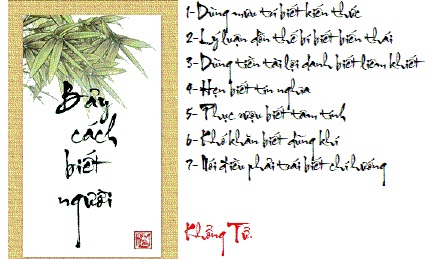 Bảy
cách
biết
người
1- Dùng mưu trí biết kiến thức
2- Lý luận dồn thế bí biết biến thái
3- Dùng tiền tài lợi danh biết liêm khiết
4- Hẹn biết tín nghĩa
5- Thục rượu biết tâm tính
6- Khó khăn biết dũng khí
7- Nói điều phải trái biết chí hướng
Khổng Tử.